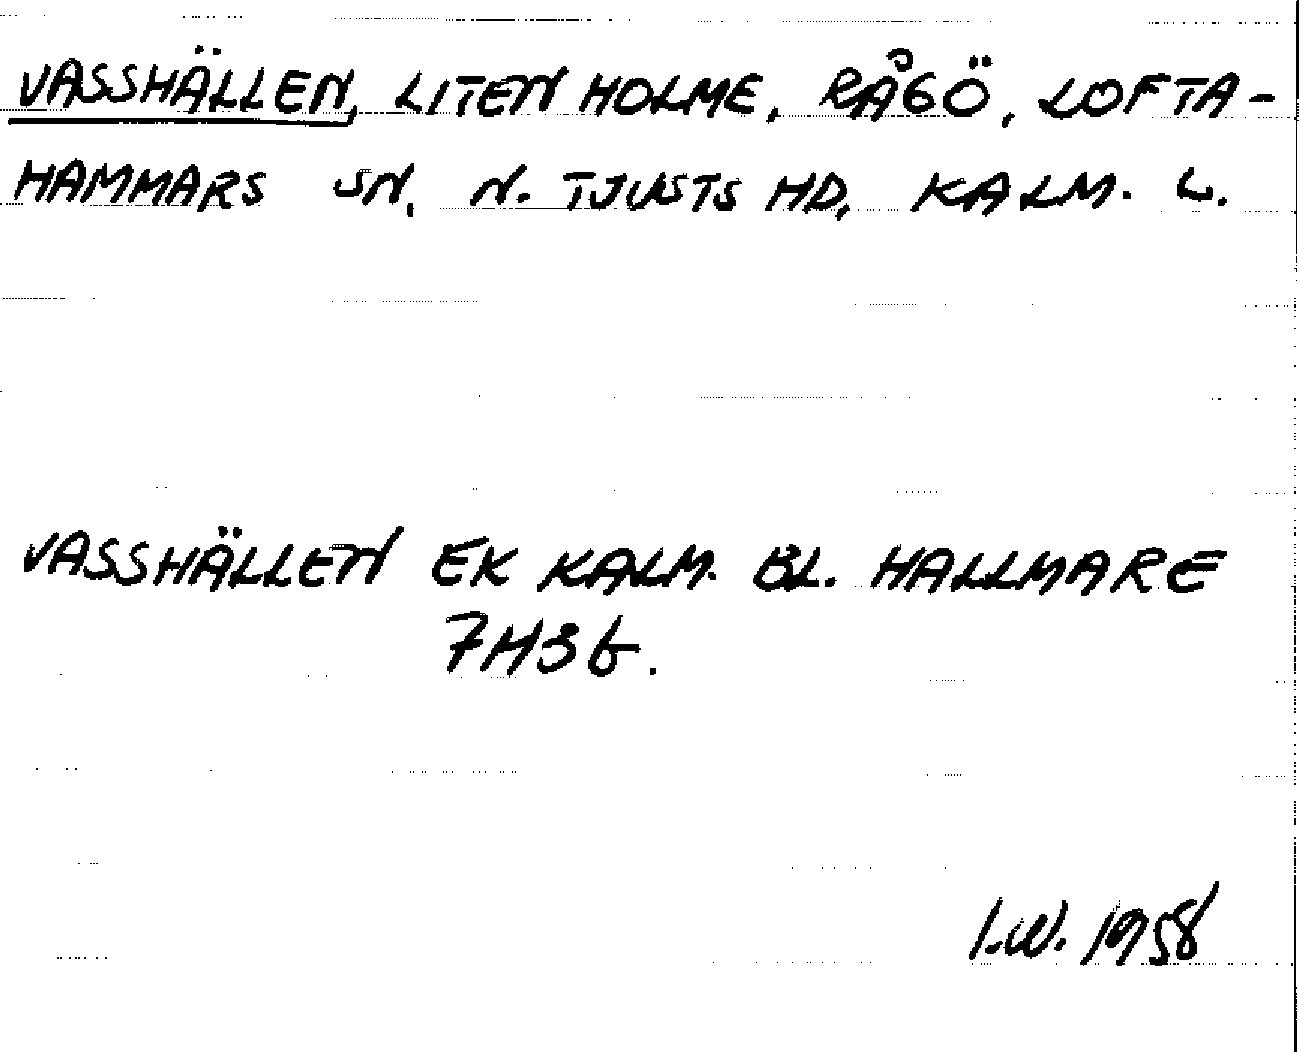 VASSHÄLLEN, LITEN HOLME, RÅGÖ, LOFTA-
HAMMARS SN, N. TJUSTS HD, KALM. L.
VASSHÄLLEN EK KALM. BL. HALLMARE
7H3b.
I.W. 1958